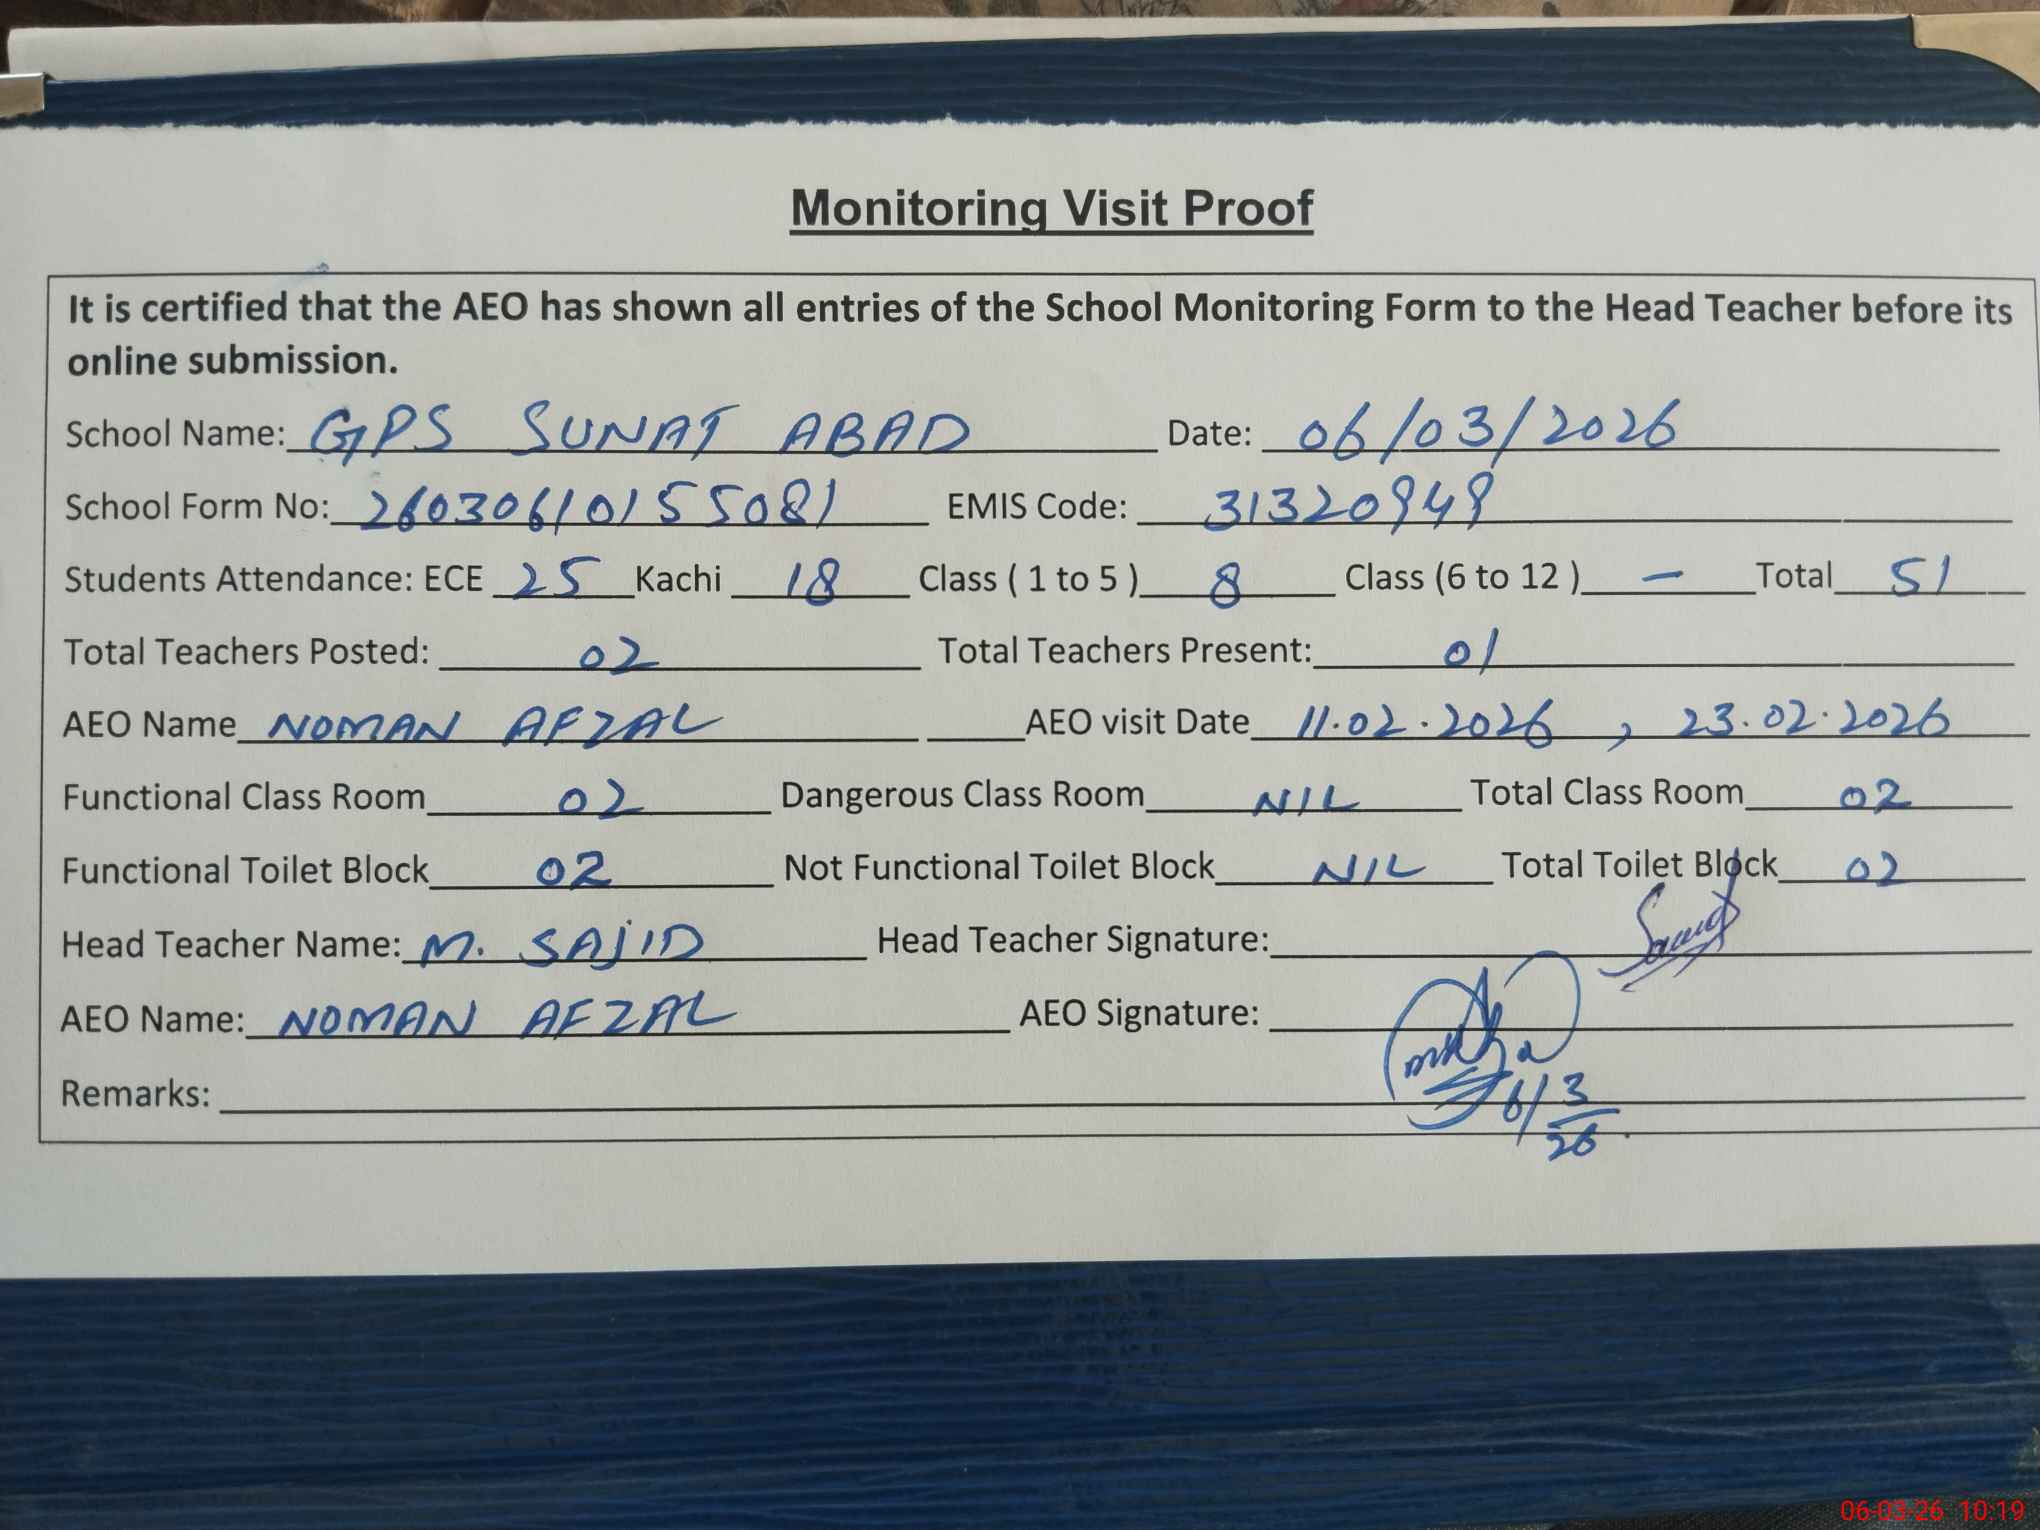 Monitoring Visit Proof
It is certified that the AEO has shown all entries of the School Monitoring Form to the Head Teacher before its
online submission.
School Name: GPS SUNAT ABAD Date: 06/03/2026
School Form No: 26030610155081 EMIS Code: 31320949
Students Attendance: ECE 25 Kachi 18 Class ( 1 to 5 ) 8 Class (6 to 12 ) - Total 51
Total Teachers Posted: 02 Total Teachers Present: 01
AEO Name NOMAN AFZAL AEO visit Date 11.02.2026 , 23.02.2026
Functional Class Room 02 Dangerous Class Room NIL Total Class Room 02
Functional Toilet Block 02 Not Functional Toilet Block NIL Total Toilet Block 02
Head Teacher Name: M. SAJID Head Teacher Signature:
AEO Name: NOMAN AFZAL AEO Signature:
Remarks: 6/3/26
06-03-26 10:19